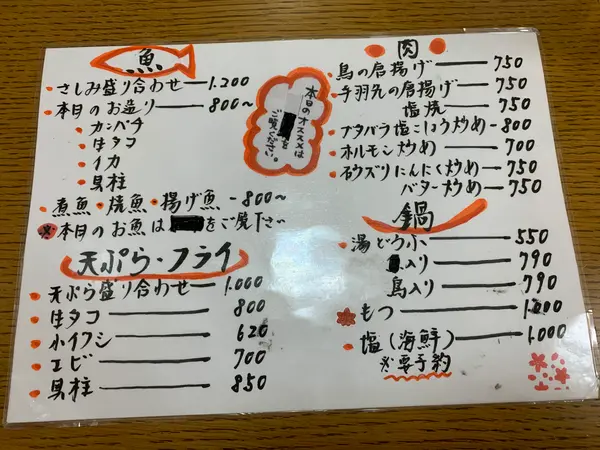 魚
・さしみ盛り合わせ — 1,200
・本日のお造り — 800〜
・カンパチ
・生タコ
・イカ
・貝柱
・煮魚・焼魚・揚げ魚 - 800〜
※本日のお魚は をご覧下さい
天ぷら・フライ
・天ぷら盛り合わせ — 1,000
・生タコ — 800
・小イワシ — 620
・エビ — 700
・貝柱 — 850
本日のオススメは
を
ご覧ください。
・肉・
・鳥の唐揚げ — 750
・手羽先の唐揚げ — 750
塩焼 — 750
・ブタバラ塩こしょう炒め - 800
・ホルモン炒め — 700
・砂ズリにんにく炒め - 750
バター炒め — 750
鍋
・湯どうふ — 550
入り — 790
鳥入り — 790
もつ —
・塩(海鮮) — 1,000
※要予約